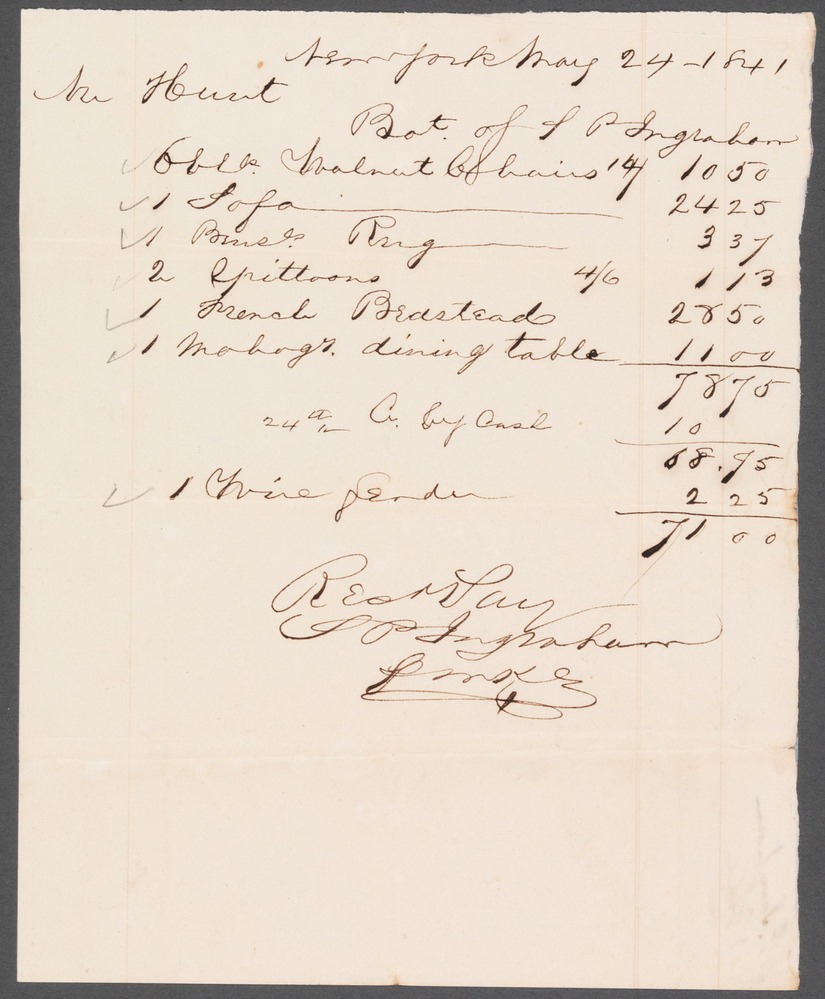 New York May 24 - 1841
Mr Hunt
Bot. of S P Ingraham
6 blk. Walnut Chairs 14/ 10 50
1 Sofa 24 25
1 Brusls. Rug 3 37
2 Spittoons 4/6 1 13
1 French Bedstead 28 50
1 Mahogy. dining table 11 00
78 75
24th Cr. by Cash 10
68.75
1 Wire fender 2 25
71 00
Recd Pay
S P Ingraham